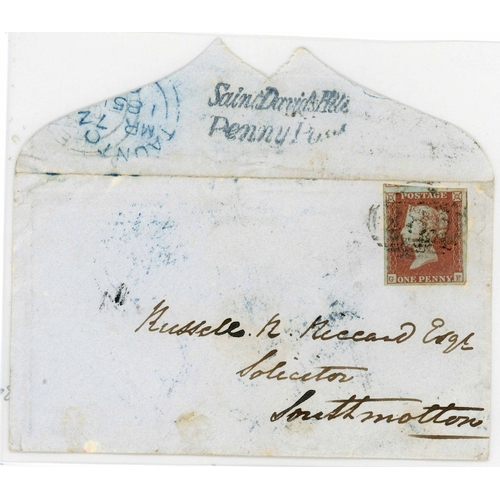 Saint Davids Hill
Penny Post
TAUNTON
MR 7
POSTAGE
ONE PENNY
Russell N Riccard Esqr
Solicitor
Southmolton